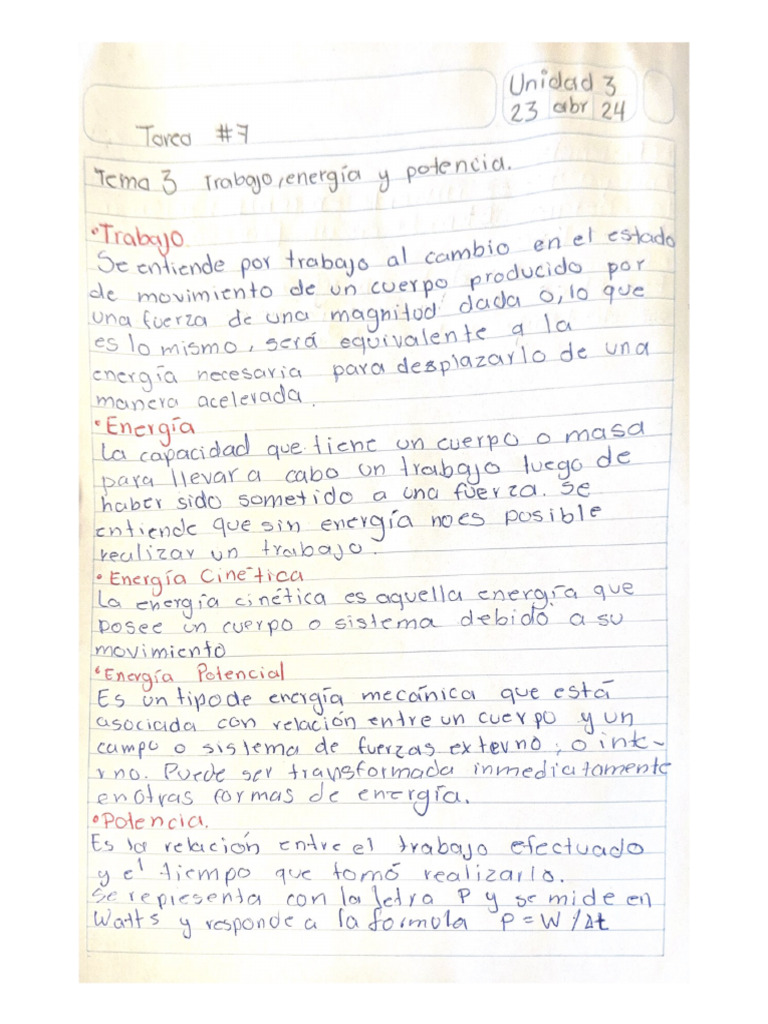 Unidad 3
23 abr 24
Tarea #7
Tema 3 Trabajo, energía y potencia.
•Trabajo
Se entiende por trabajo al cambio en el estado
de movimiento de un cuerpo producido por
una fuerza de una magnitud dada o, lo que
es lo mismo, será equivalente a la
energía necesaria para desplazarlo de una
manera acelevada.
•Energía
La capacidad que tiene un cuerpo o masa
para llevar a cabo un trabajo luego de
haber sido sometido a una fuerza. Se
entiende que sin energía no es posible
realizar un trabajo.
•Energía Cinética
La energía cinética es aquella energía que
posee un cuerpo o sistema debido a su
movimiento
•Energía Potencial
Es un tipo de energía mecánica que está
asociada con relación entre un cuerpo y un
campo o sistema de fuerzas externo, o inte-
rno. Puede ser transformada inmediatamente
en otras formas de energía.
•Potencia.
Es la relación entre el trabajo efectuado
y el tiempo que tomó realizarlo.
Se representa con la letra P y se mide en
Watts y responde a la formula P = W/Δt